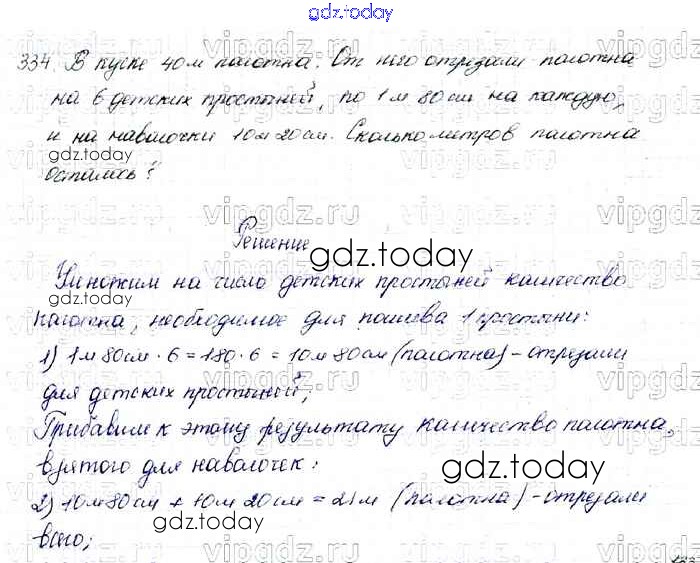 gdz.today
334. В куске 40 м полотна. От него отрезали полотна
на 6 детских простыней, по 1 м 80 см на каждую,
и на наволочки 10 м 20 см. Сколько метров полотна
gdz.today
осталось?
vipgdz.ru
Решение
gdz.today
Умножим на число детских простыней количество
полотна, необходимое для пошива 1 простыни:
1) 1 м 80 см · 6 = 180 · 6 = 10 м 80 см (полотна) - отрезали
для детских простыней;
Прибавим к этому результату количество полотна,
взятого для наволочек:
gdz.today
2) 10 м 80 см + 10 м 20 см = 21 м (полотна) - отрезали
gdz.today
всего;